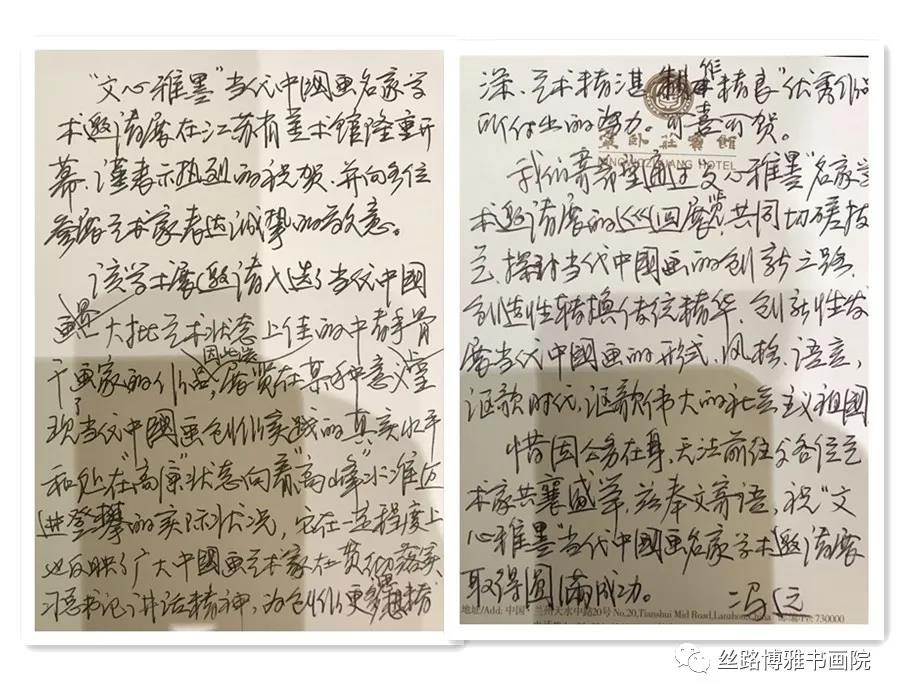 “文心雅墨”当代中国画名家学
术邀请展在江苏省美术馆隆重开
幕，谨表示热烈的祝贺，并向各位
参展艺术家表达诚挚的敬意。
该学术展邀请入选了当代中国
画界大批艺术状态上佳的中青年骨
干画家的作品，因此这展览在某种意义上呈
现了当代中国画创作实践的真实水平
和处在“高原”状态向着“高峰”水准迈
进登攀的实际状况，它在一定程度上
也反映了广大中国画艺术家在贯彻落实
习总书记讲话精神，为创作更多思想精
深、艺术精湛、制作精良”优秀作品
所付出的努力。可喜可贺。
我们希望通过“文心雅墨”名家学
术邀请展的巡回展览，共同切磋技
艺，探讨当代中国画的创新之路，
创造性转换传统精华，创新性发
展当代中国画的形式、风格、语言，
讴歌时代，讴歌伟大的社会主义祖国。
惜因公务在身，无法前往与各位艺
术家共襄盛举，兹奉文寄语，祝“文
心雅墨”当代中国画名家学术邀请展
取得圆满成功。
冯远
宁卧莊賓館
NINGWOZHUANG HOTEL
地址/Add: 中国·兰州天水中路20号 No.20,Tianshui Mid Road,Lanzhou,China 730000
丝路博雅书画院